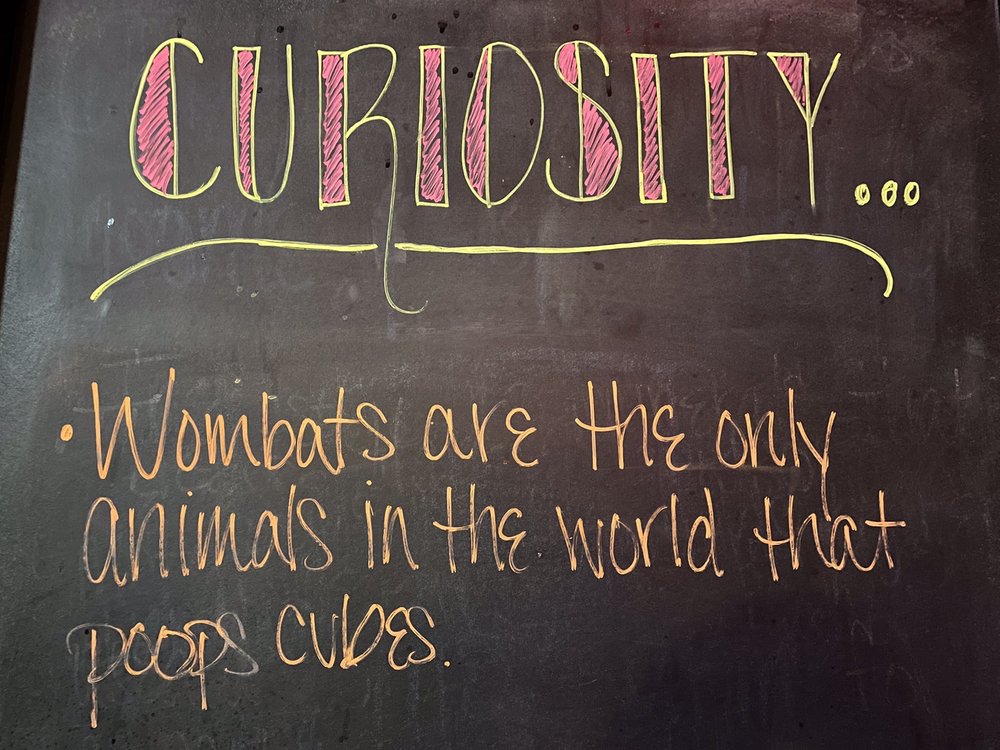 CURIOSITY...
• Wombats are the only
animals in the world that
poops cubes.